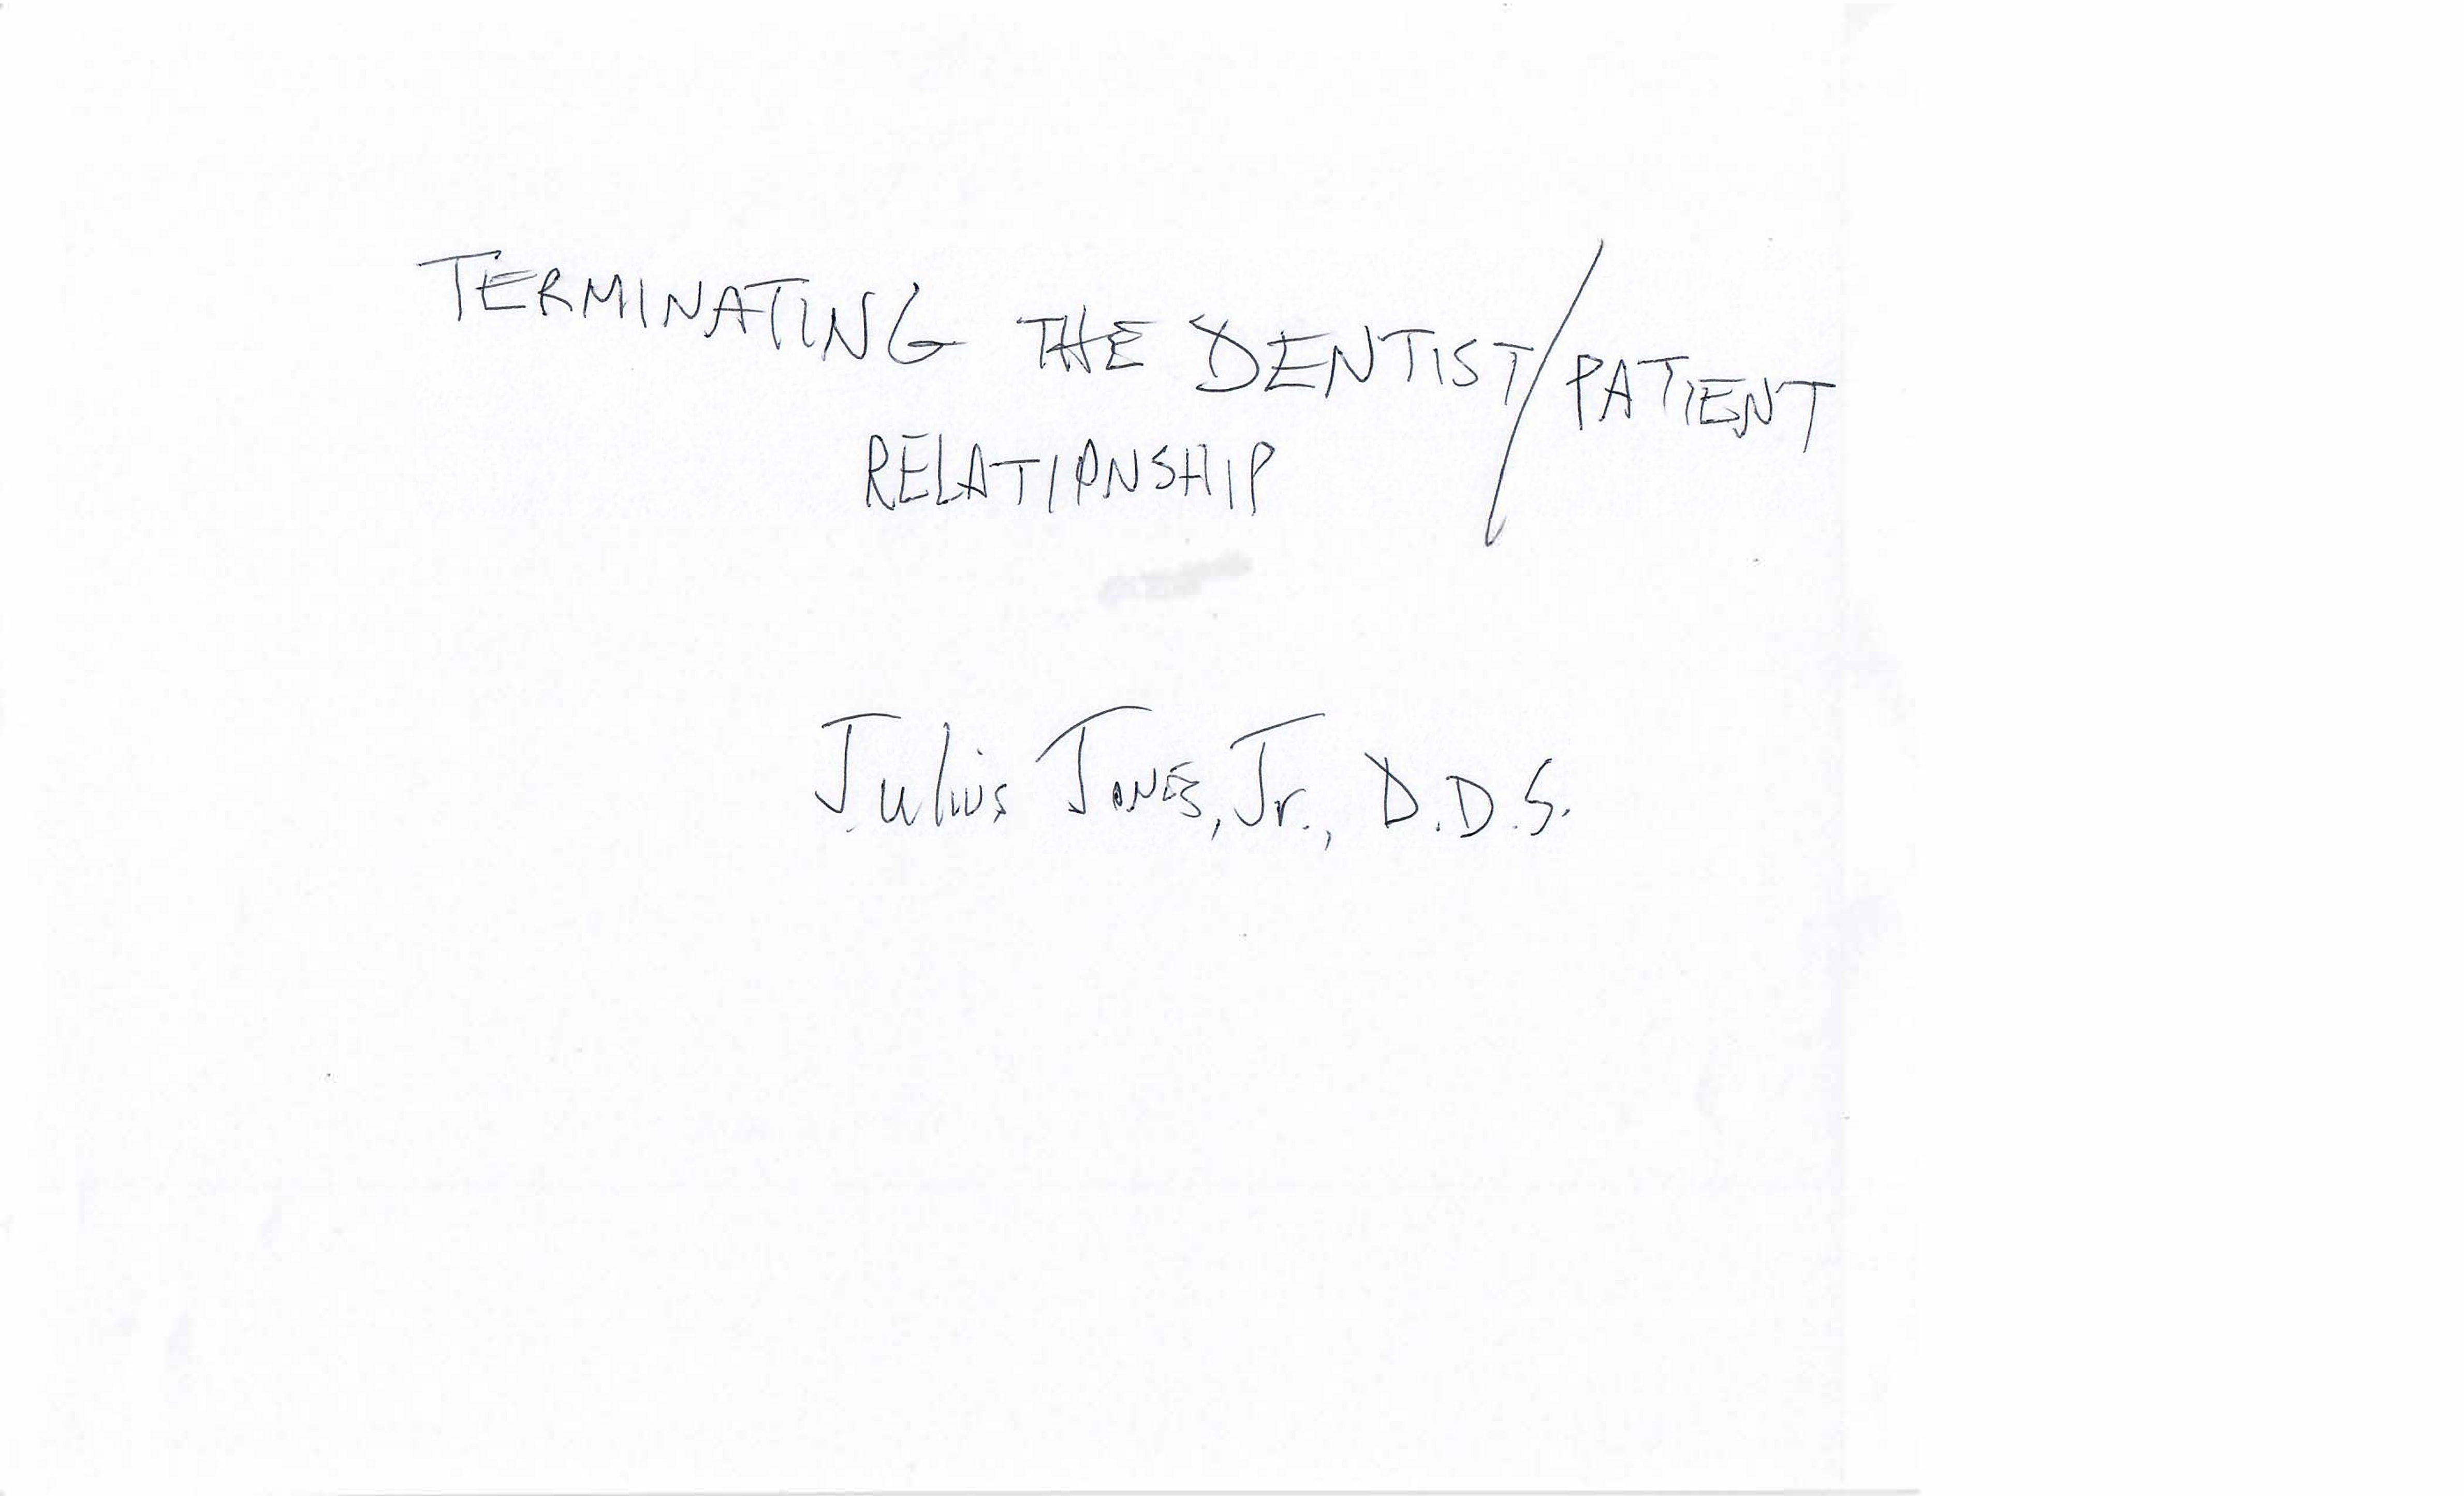 TERMINATING THE DENTIST/PATIENT
RELATIONSHIP
Julius Jones, Jr., D.D.S.